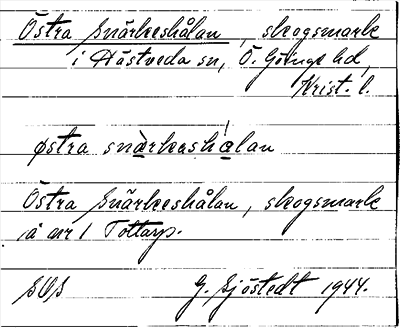 Östra Snärkeshålan, skogsmark
i Hästveda sn, Ö. Göinge hd,
Krist. l.
østra snàrkəshalan
Östra Snärkeshålan, skogsmark
å nr 1 Tottarp.
SOS G. Sjöstedt 1944.